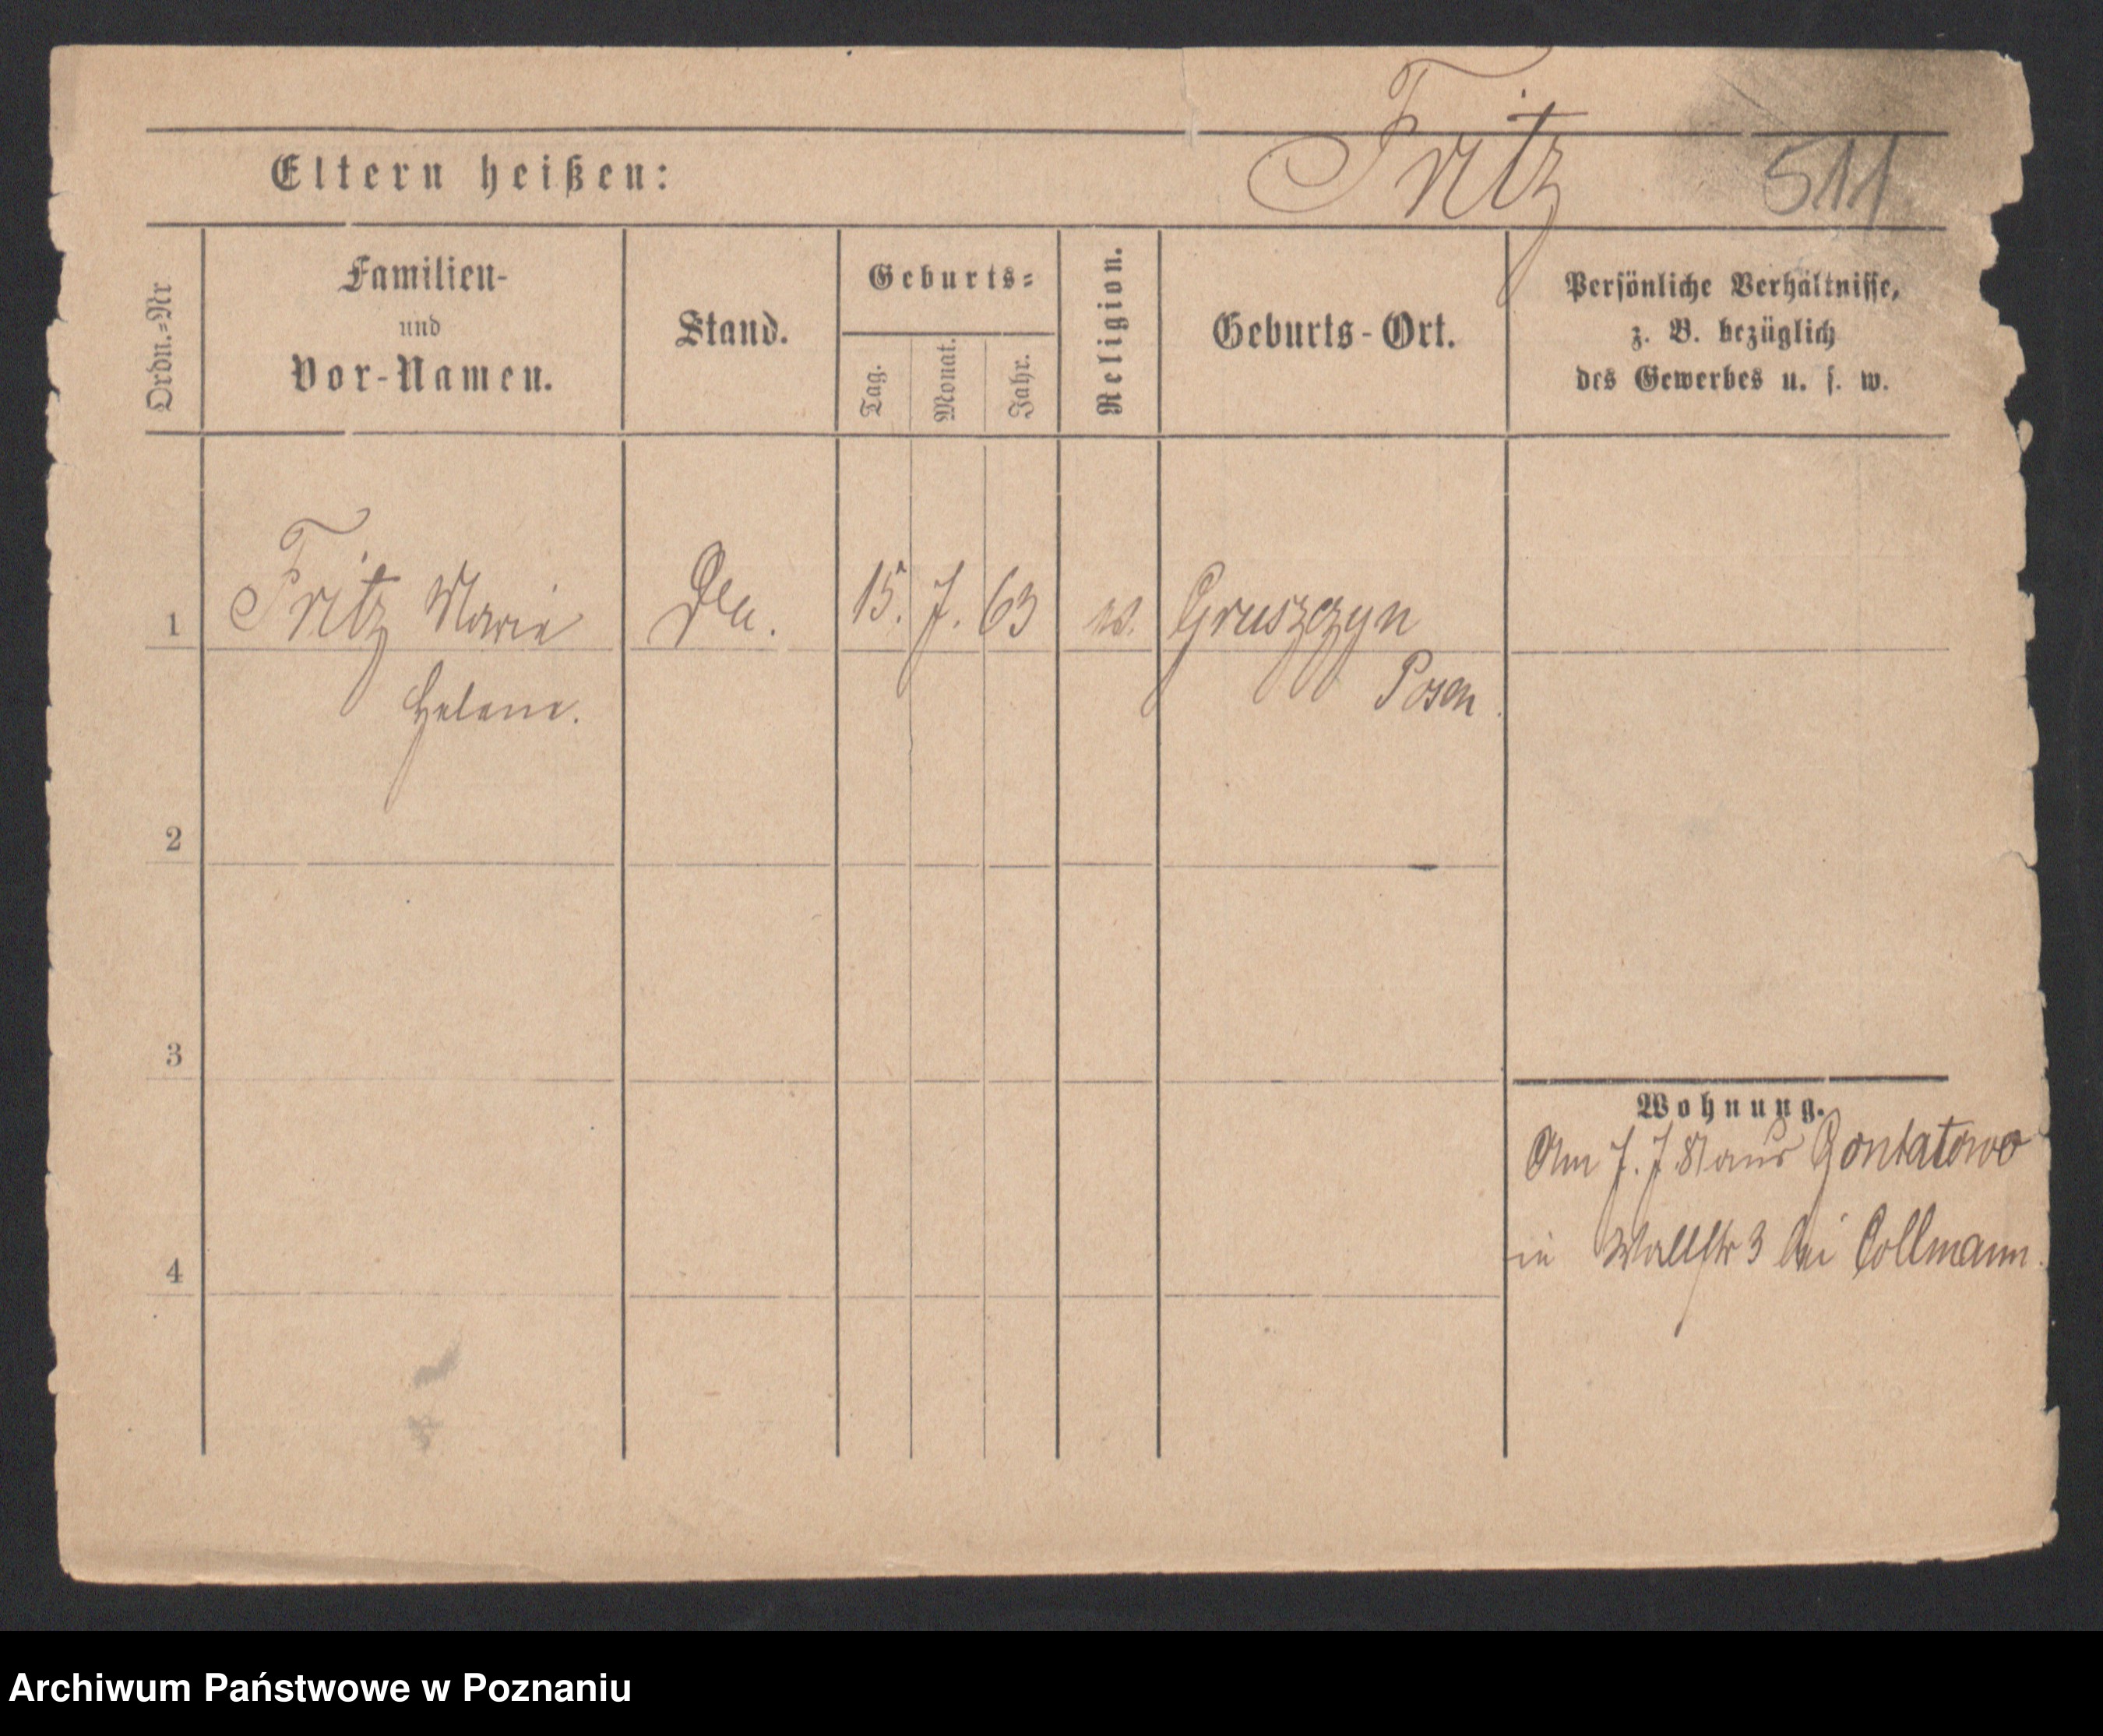 Fritz
511
Eltern heißen:
Ordn.=Nr
Familien-
und
Vor-Namen.
Stand.
Geburts=
Tag.
Monat.
Jahr.
Religion.
Geburts-Ort.
Persönliche Verhältnisse,
z. B. bezüglich
des Gewerbes u. s. w.
1 Fritz Marie 15. 7. 63 Gruszczyn
Helene. Posen.
2
3
4
Wohnung.
Am 7. 7. 81 aus
in Wallstr 3 bei Collmann.
Archiwum Państwowe w Poznaniu